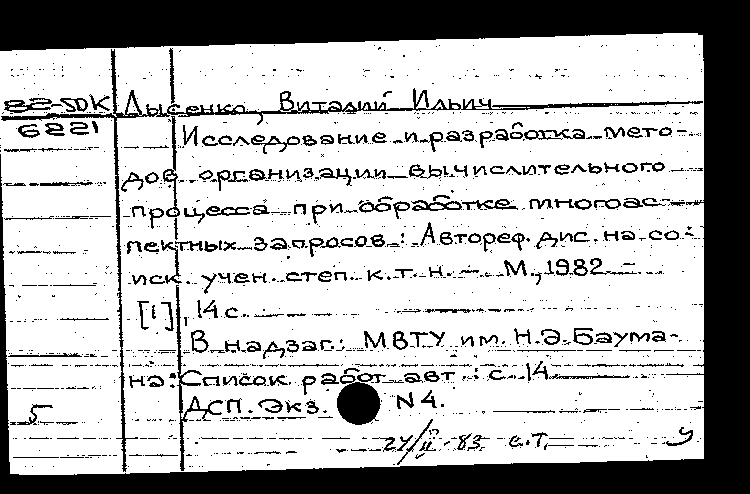 82-5DK Лысенко, Виталий Ильич
6221 Исследование и разработка мето-
дов организации вычислительного
процесса при обработке многоас-
пектных запросов: Автореф. дис. на со-
иск. учен. степ. к.т.н. - М., 1982 -
[1], 14 с.
В надзаг.: МВТУ им. Н.Э. Баума-
на. Список работ авт.: с. 14
5 ДСП. Экз. N 4.
24/II-83 с.т. У